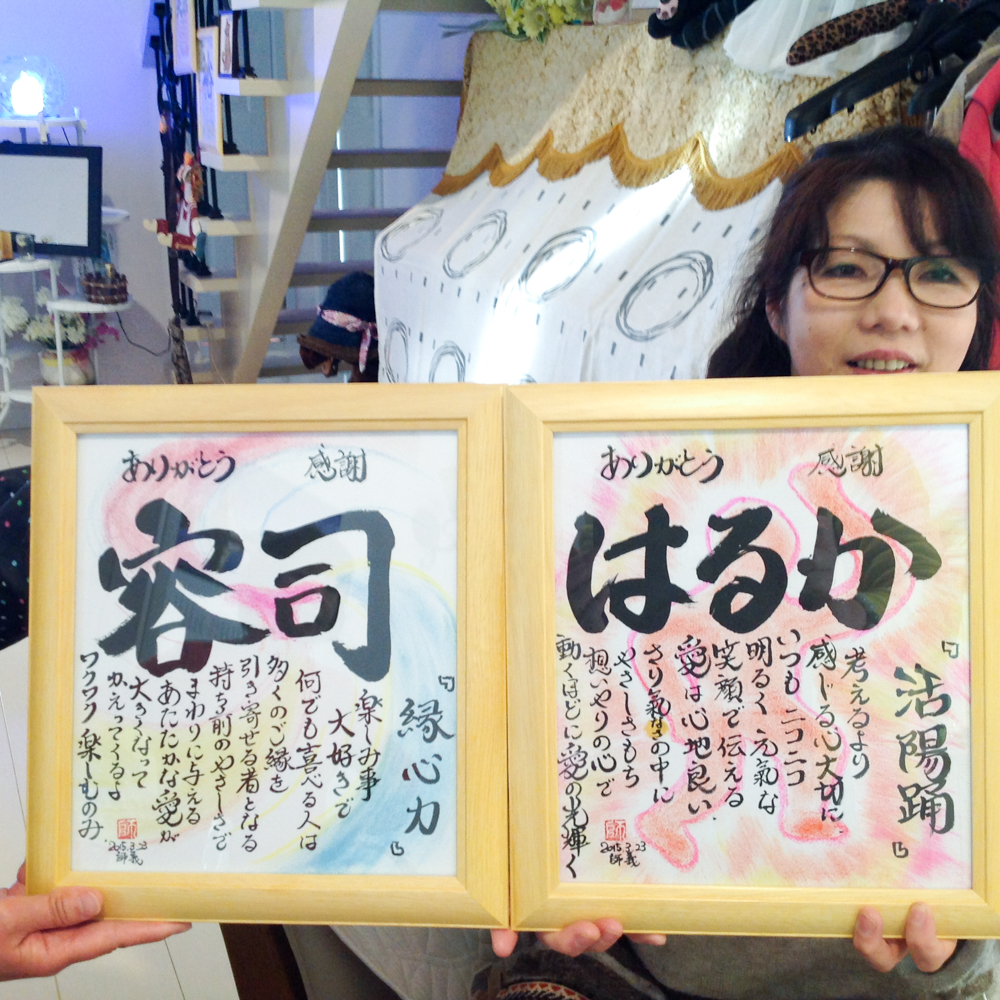 ありがとう 感謝
容司
『縁心力』
楽しみ事
大好きで
何でも喜べる人は
多くのご縁を
引き寄せる者となる
持ち前のやさしさで
まわりに与える
あたたかな愛が
大きくなって
かえってくるよ
ワクワク楽しむのみ
2015.3.23
師義
ありがとう 感謝
はるか
『活陽踊』
考えるより
感じる心大切に
いつもニコニコ
明るく元氣な
笑顔で伝える
愛は心地良い
さり氣なさの中に
やさしさもち
想いやりの心で
動くほどに愛の光輝く
2015.3.23
師義